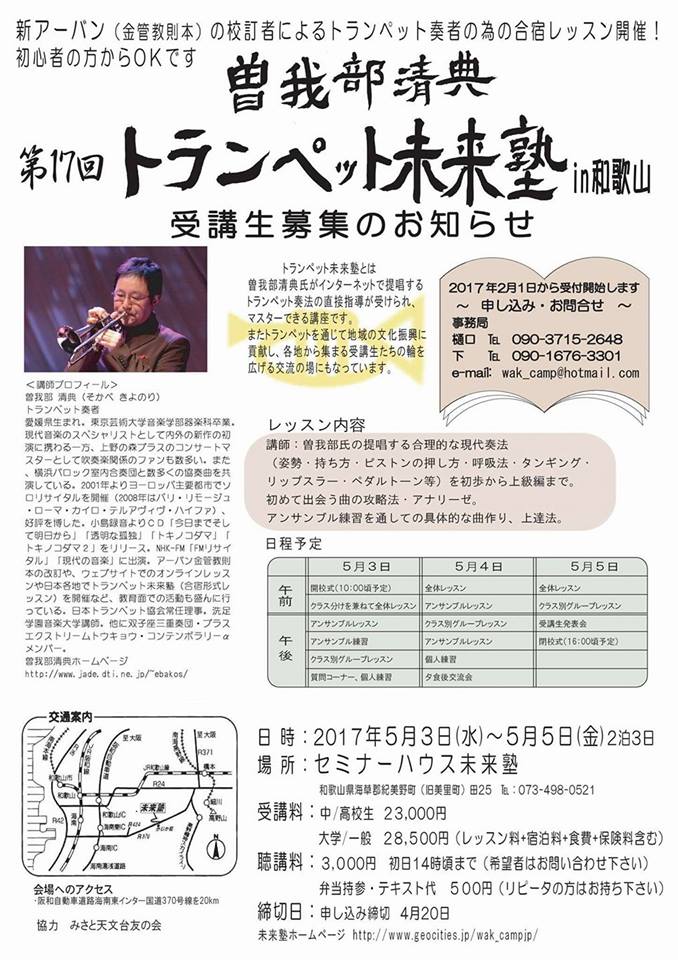 新アーバン（金管教則本）の校訂者によるトランペット奏者の為の合宿レッスン開催！
初心者の方からOKです
曽我部清典
第17回 トランペット未来塾 in和歌山
受講生募集のお知らせ
トランペット未来塾とは
曽我部清典氏がインターネットで提唱する
トランペット奏法の直接指導が受けられ、
マスターできる講座です。
またトランペットを通じて地域の文化振興に
貢献し、各地から集まる受講生たちの輪を
広げる交流の場にもなっています。
2017年2月1日から受付開始します
～ 申し込み・お問合せ ～
事務局
樋口 ℡ 090-3715-2648
下 ℡ 090-1676-3301
e-mail: wak_camp@hotmail.com
＜講師プロフィール＞
曽我部 清典（そかべ きよのり）
トランペット奏者
愛媛県生まれ。東京芸術大学音楽学部器楽科卒業。
現代音楽のスペシャリストとして内外の新作の初
演に携わる一方、上野の森ブラスのコンサートマ
スターとして吹奏楽関係のファンも多い。ま
た、横浜バロック室内合奏団と数多くの協奏曲を共
演している。2001年よりヨーロッパ主要都市でソ
ロリサイタルを開催（2008年はパリ・リモージュ
・ローマ・カイロ・テルアヴィヴ・ハイファ）、
好評を博した。小島録音よりCD「今日までそし
て明日から」「透明な孤独」「トキノコダマ」「
トキノコダマ2」をリリース。NHK-FM「FMリサイ
タル」「現代の音楽」に出演。アーバン金管教則
本の改訂や、ウェブサイトでのオンラインレッス
ンや日本各地でトランペット未来塾（合宿形式レ
ッスン）を開催など、教育面での活動も盛んに行
っている。日本トランペット協会常任理事。洗足
学園音楽大学講師。他に双子座三重奏団・ブラス
エクストリームトウキョウ・コンテンポラリーα
メンバー。
曽我部清典ホームページ
http://www.jade.dti.ne.jp/~ebakos/
レッスン内容
講師：曽我部氏の提唱する合理的な現代奏法
（姿勢・持ち方・ピストンの押し方・呼吸法・タンギング・
リップスラー・ペダルトーン等）を初歩から上級編まで。
初めて出会う曲の攻略法・アナリーゼ。
アンサンブル練習を通しての具体的な曲作り、上達法。
日程予定
5月3日 5月4日 5月5日
午前 開校式(10:00頃予定) 全体レッスン 全体レッスン
クラス分けを兼ねて全体レッスン アンサンブルレッスン クラス別グループレッスン
午後 アンサンブルレッスン クラス別グループレッスン 受講生発表会
アンサンブル練習 アンサンブルレッスン 閉校式(16:00頃予定)
クラス別グループレッスン 個人練習
質問コーナー、個人練習 夕食後交流会
交通案内
至大阪
至大阪
R371
橋本
JR和歌山線
R24
和歌山市
和歌山
R42
海南
和歌山IC
海南東IC
R424
R370
未来塾
細川
高野山
海南IC
海南湯浅道路
N
会場へのアクセス
・阪和自動車道路海南東インター国道370号線を20km
協力 みさと天文台友の会
日 時：2017年5月3日(水)～5月5日(金)2泊3日
場 所：セミナーハウス未来塾
和歌山県海草郡紀美野町（旧美里町）田25 ℡:073-498-0521
受講料：中/高校生 23,000円
大学/一般 28,500円（レッスン料+宿泊料+食費+保険料含む）
聴講料：3,000円 初日14時頃まで（希望者はお問い合わせ下さい）
弁当持参・テキスト代 500円（リピータの方はお持ち下さい）
締切日：申し込み締切 4月20日
未来塾ホームページ http://www.geocities.jp/wak_campjp/